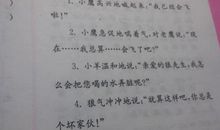 1. 小鹰高兴地喊起来，“我已经会飞
啦！”
2. 小鹰急促地喘着气，对老鹰说，“现
在……我总算……会飞了吧？”
3. 小羊温和地说，“亲爱的狼先生，我怎
么会把您喝的水弄脏呢？”
4. 狼气冲冲地说，“就算这样吧，你总是
个坏家伙！”